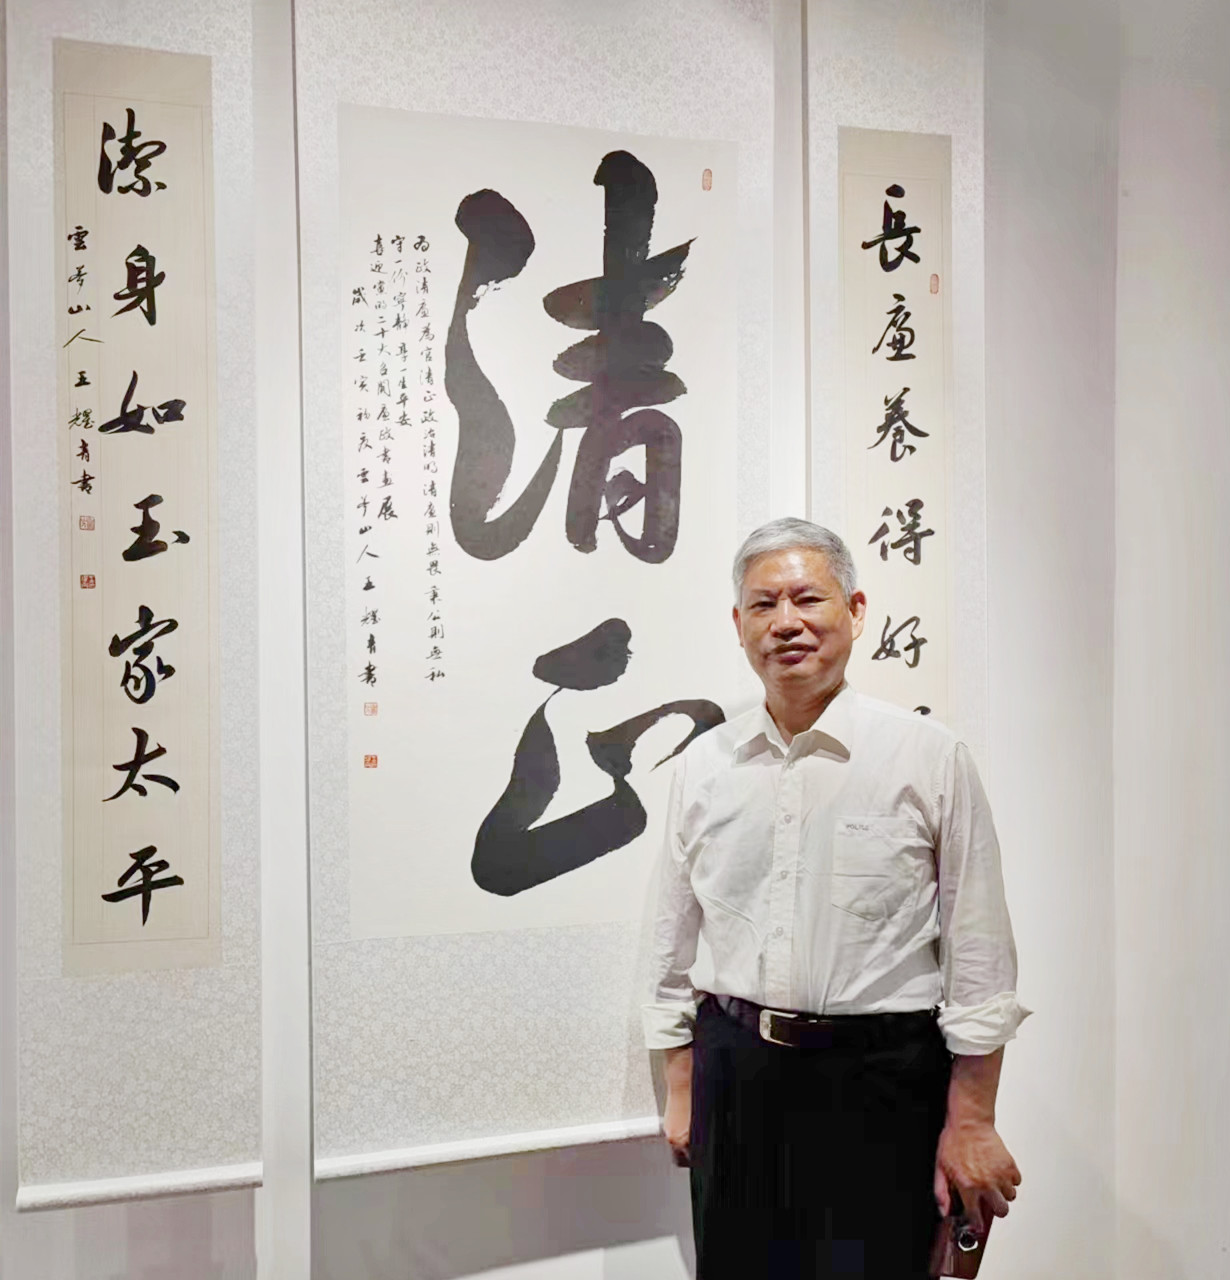 長廉養得好
清正
為政清廉為官清正政治清明清廉則無畏秉公則無私
守一份寧靜享一生平安
喜迎黨的二十大召開廉政書畫展
歲次壬寅初夏雲夢山人王耀青書
潔身如玉家太平
雲夢山人王耀青書